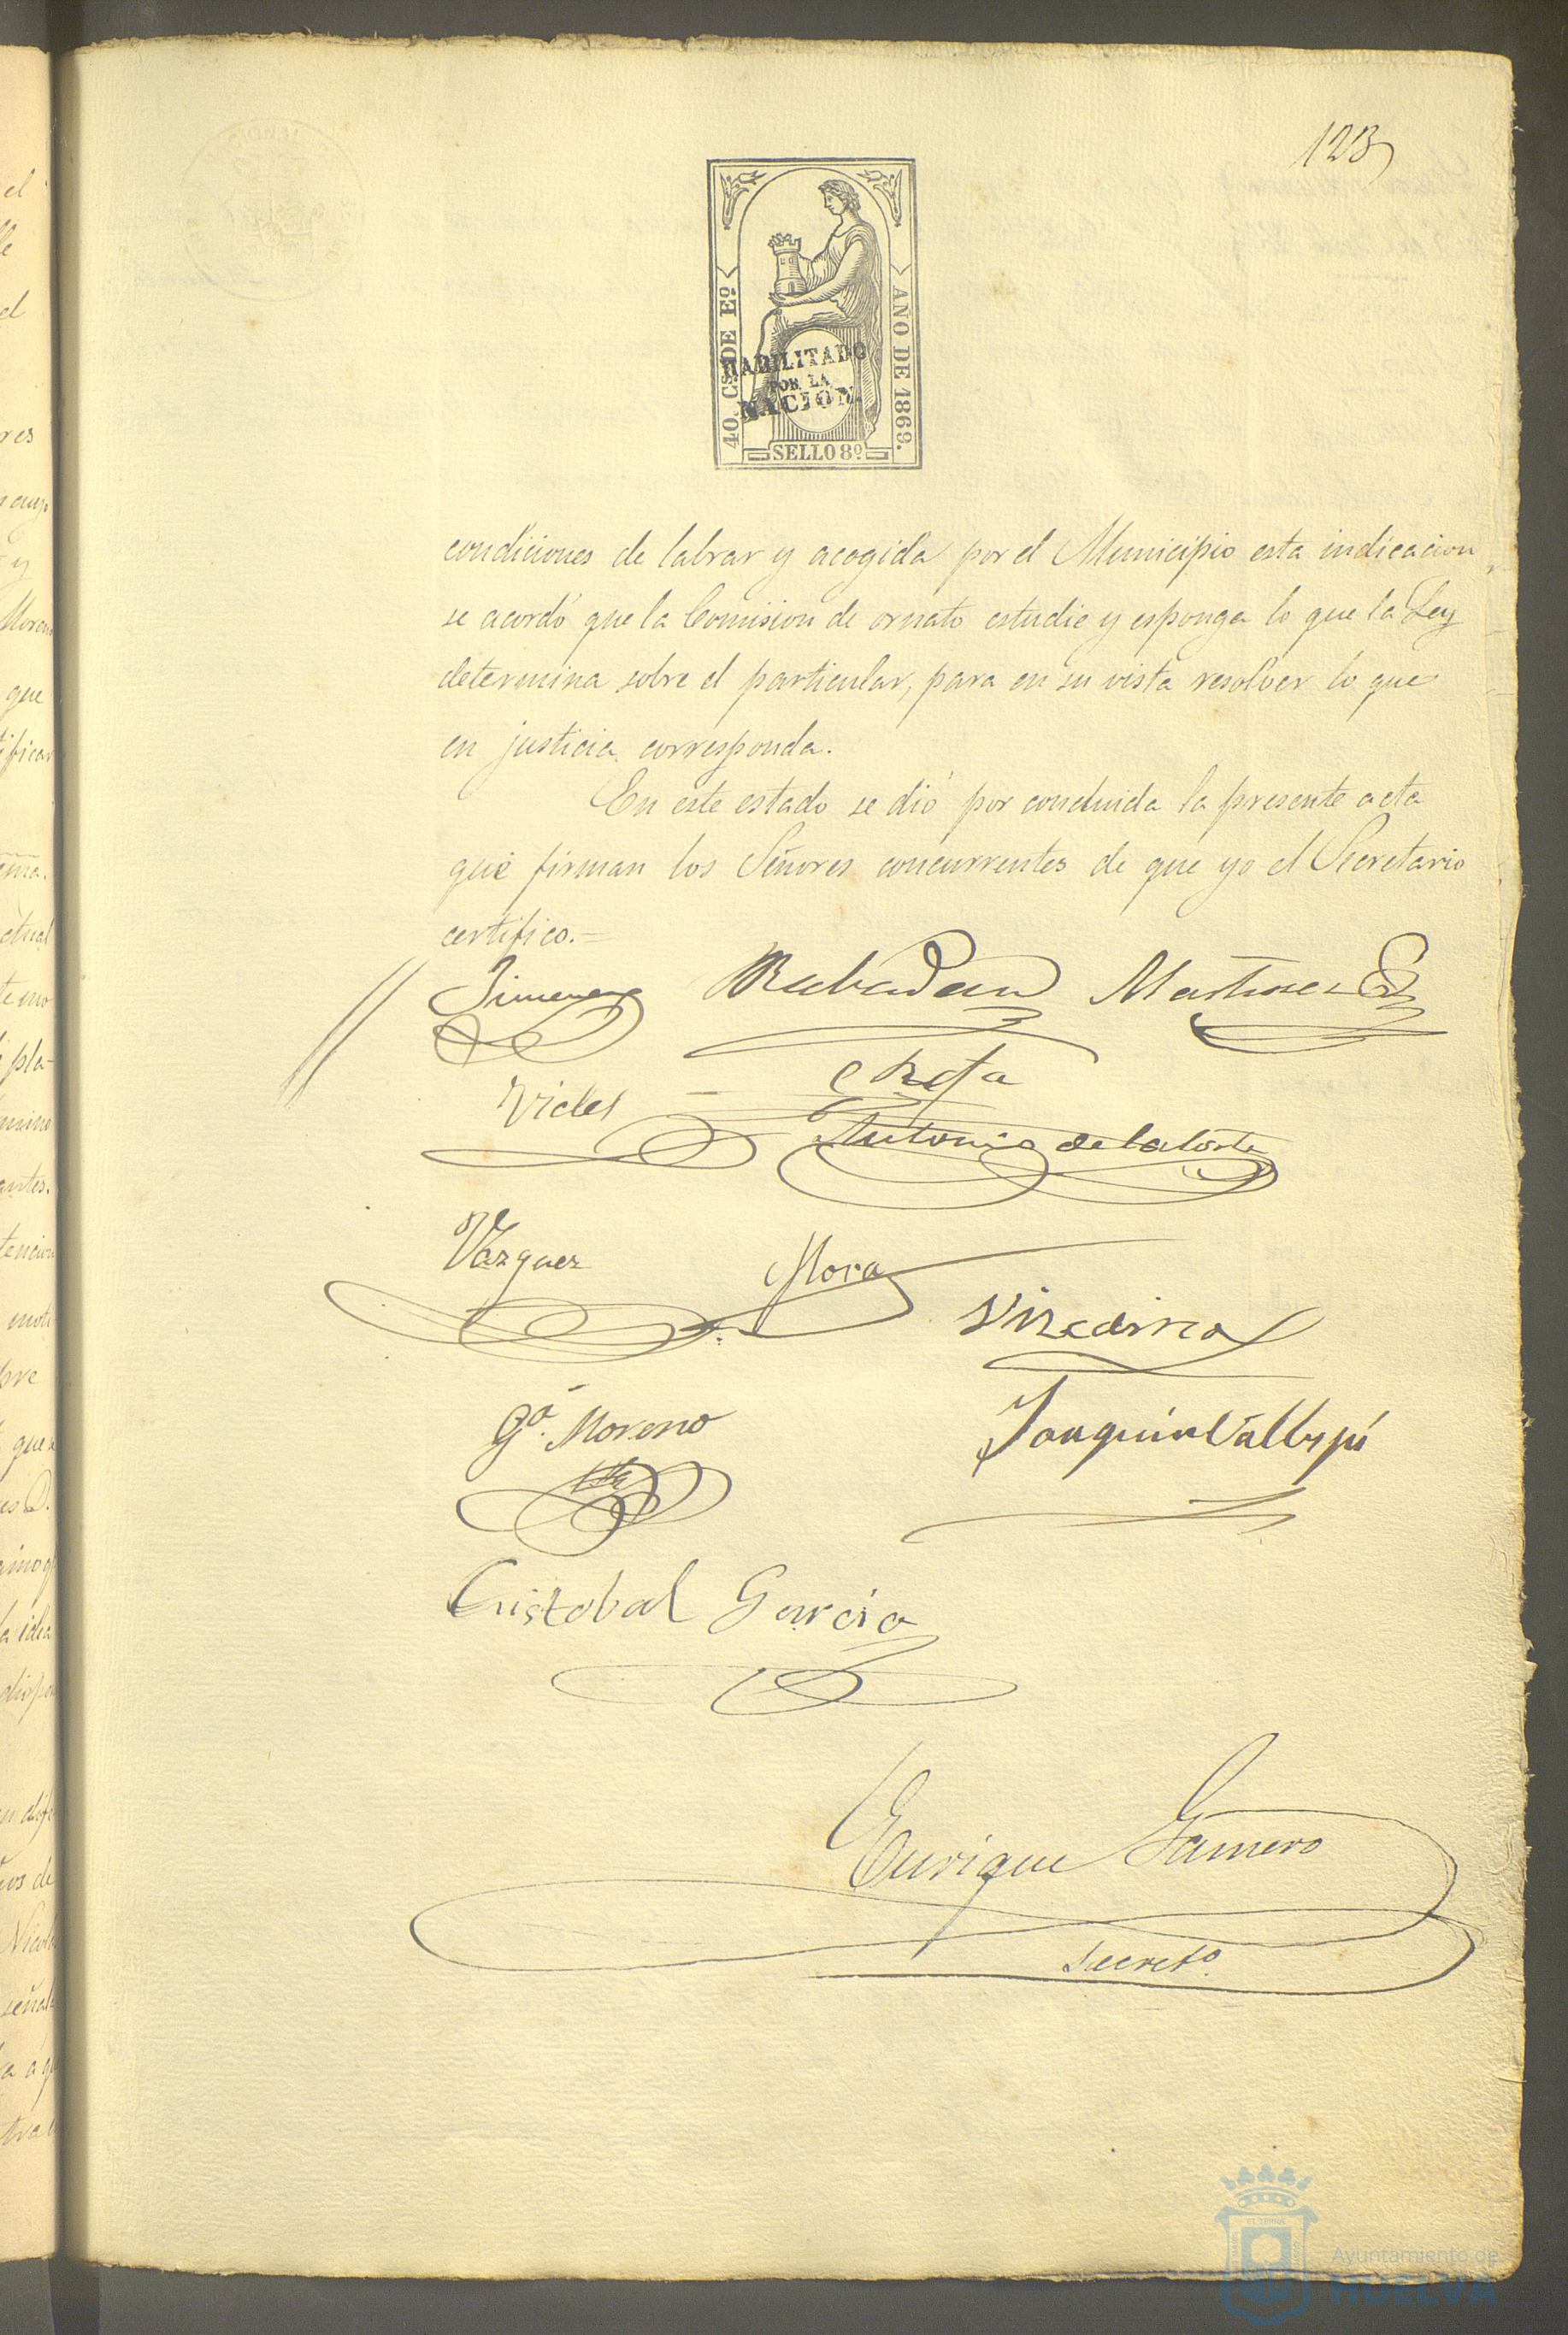 123
40. CS. DE Eº
AÑO DE 1869.
HABILITADO
POR LA
NACION.
SELLO 8º
condiciones de labrar y acogida por el Municipio esta indicacion
se acordó que la Comision de ornato estudie y esponga lo que la Ley
determina sobre el particular, para en su vista resolver lo que
en justicia corresponda.
En este estado se dió por concluida la presente acta
que firman los Señores concurrentes de que yo el Secretario
certifico.=
Jimenez Rabadan Martinez
Vides
Antonio de la Corte
Vazquez Mora
Gª. Moreno
Joaquin
Cristobal Garcia
Enrique Gamero
Secretº
Ayuntamiento de
HUELVA